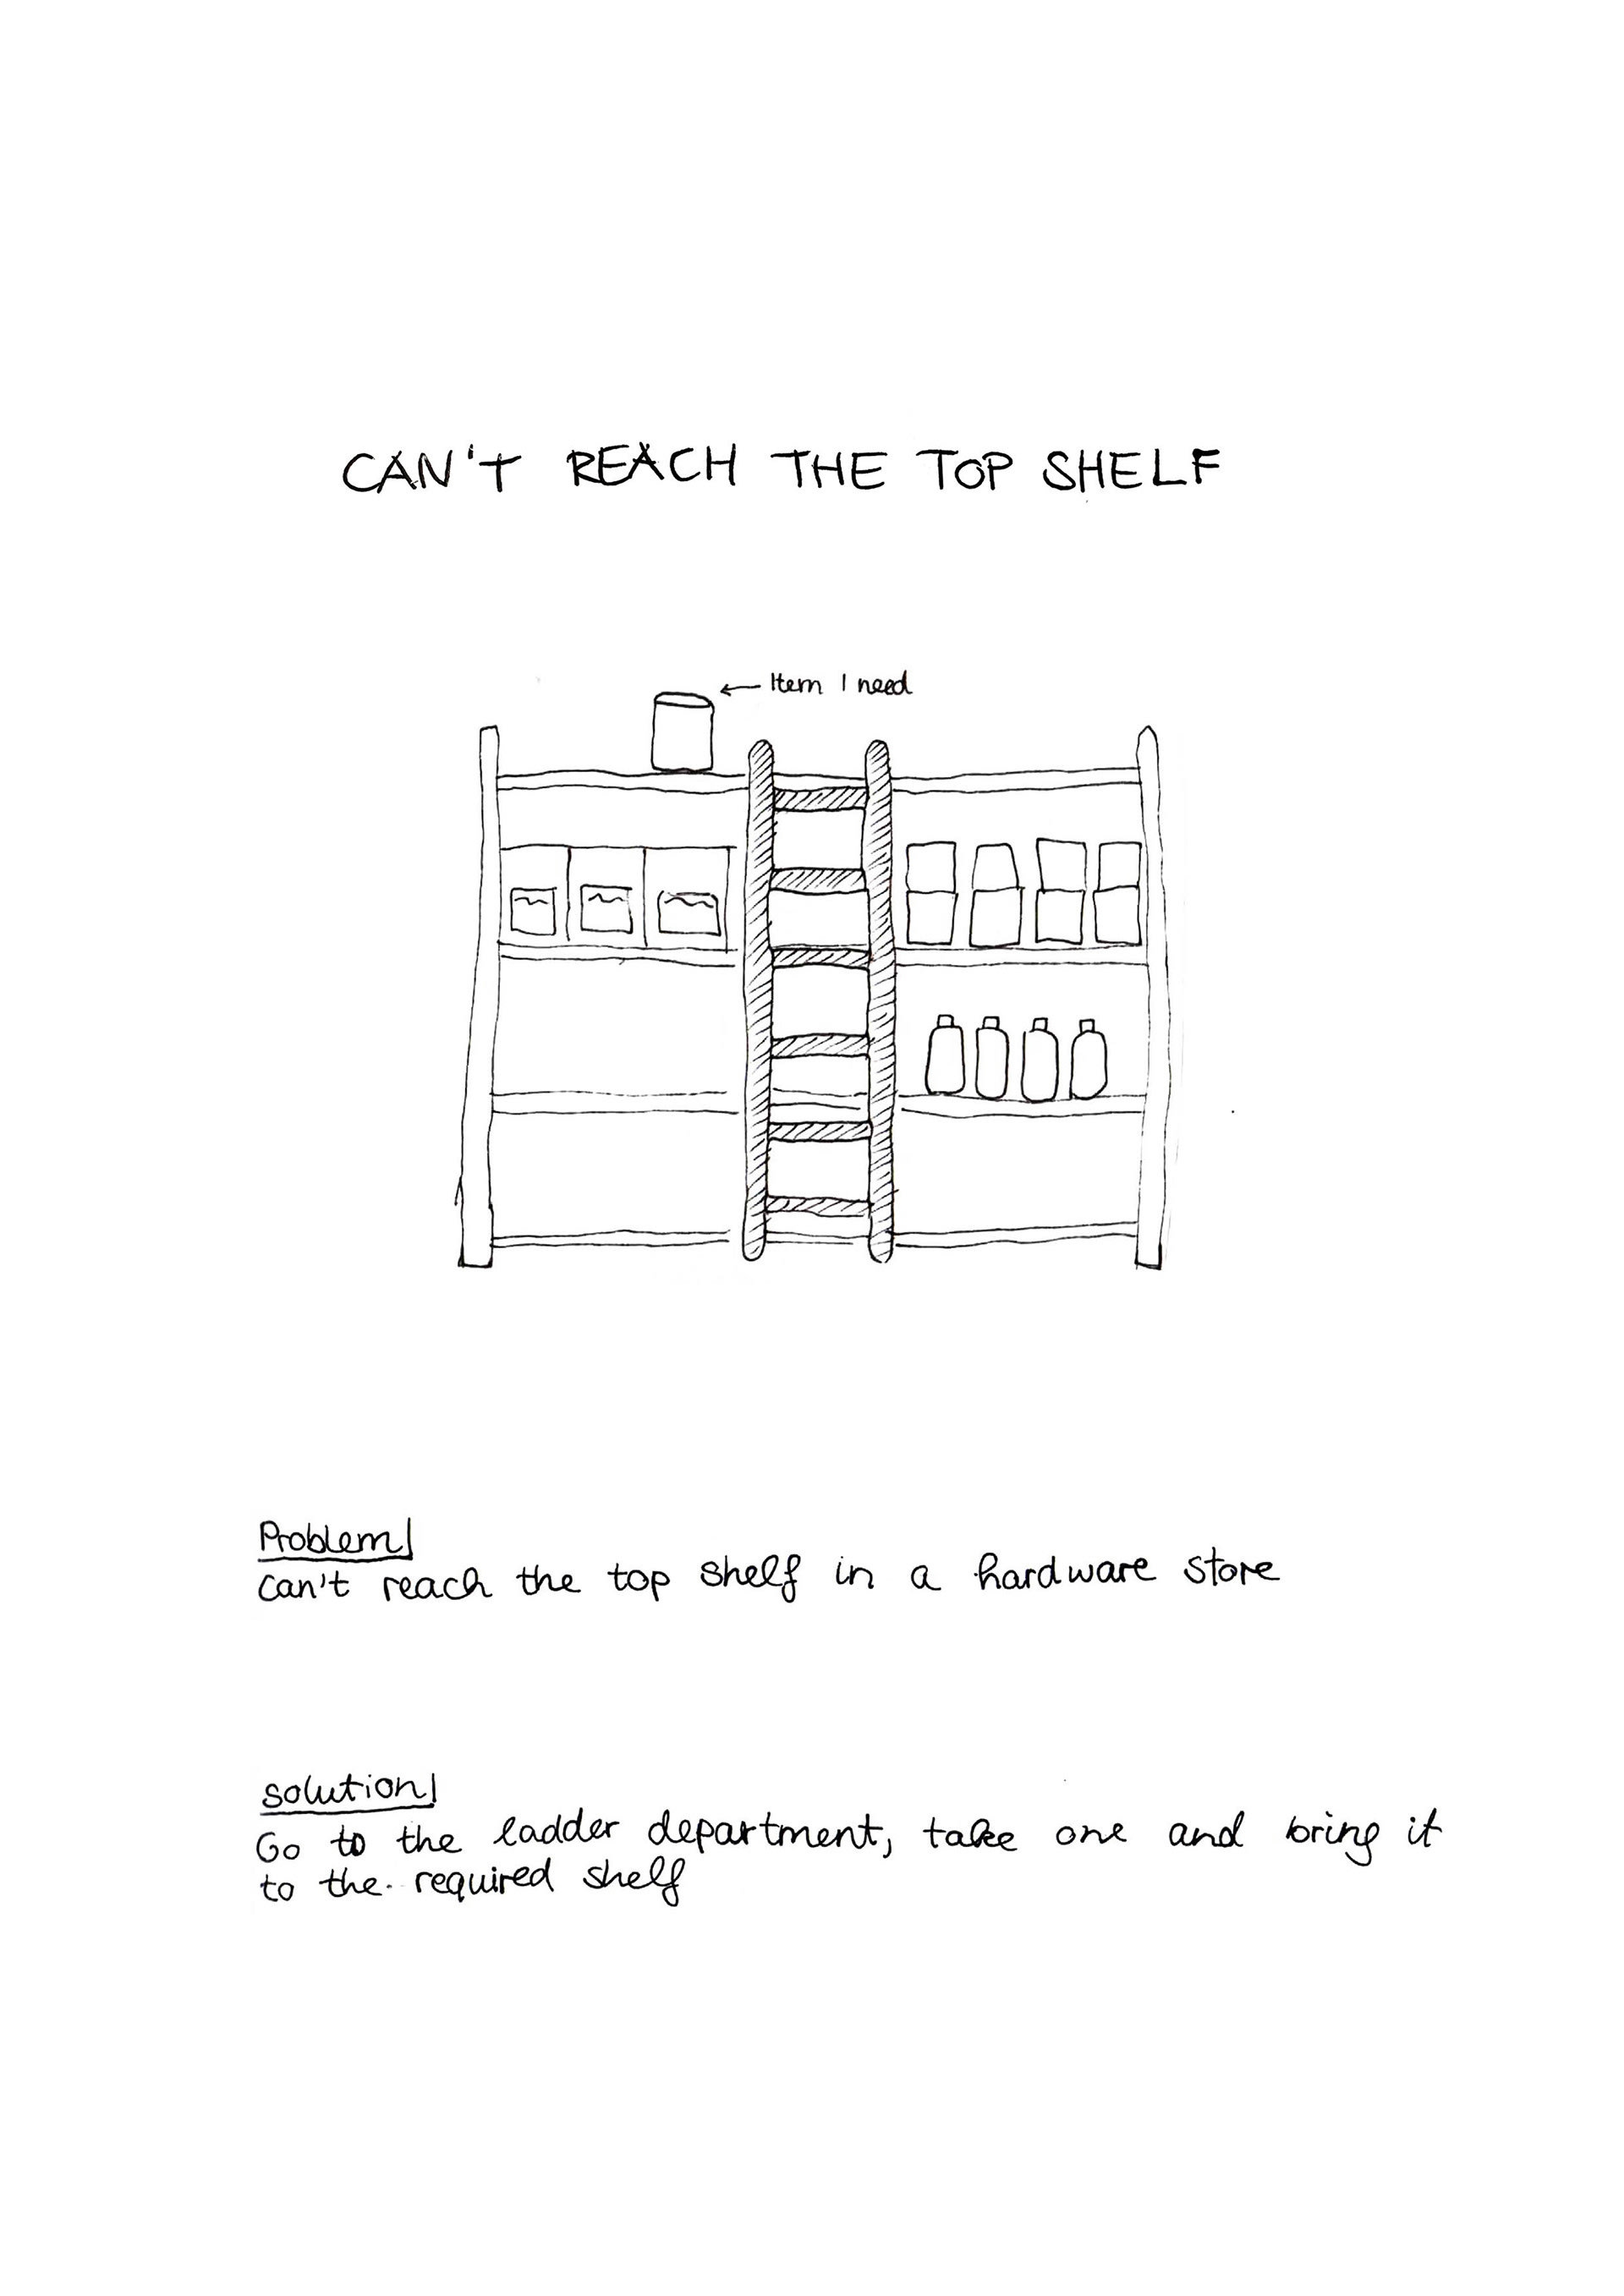 CAN'T REACH THE TOP SHELF
Item I need
Problem
can't reach the top shelf in a hardware store
solution
Go to the ladder department, take one and bring it
to the required shelf